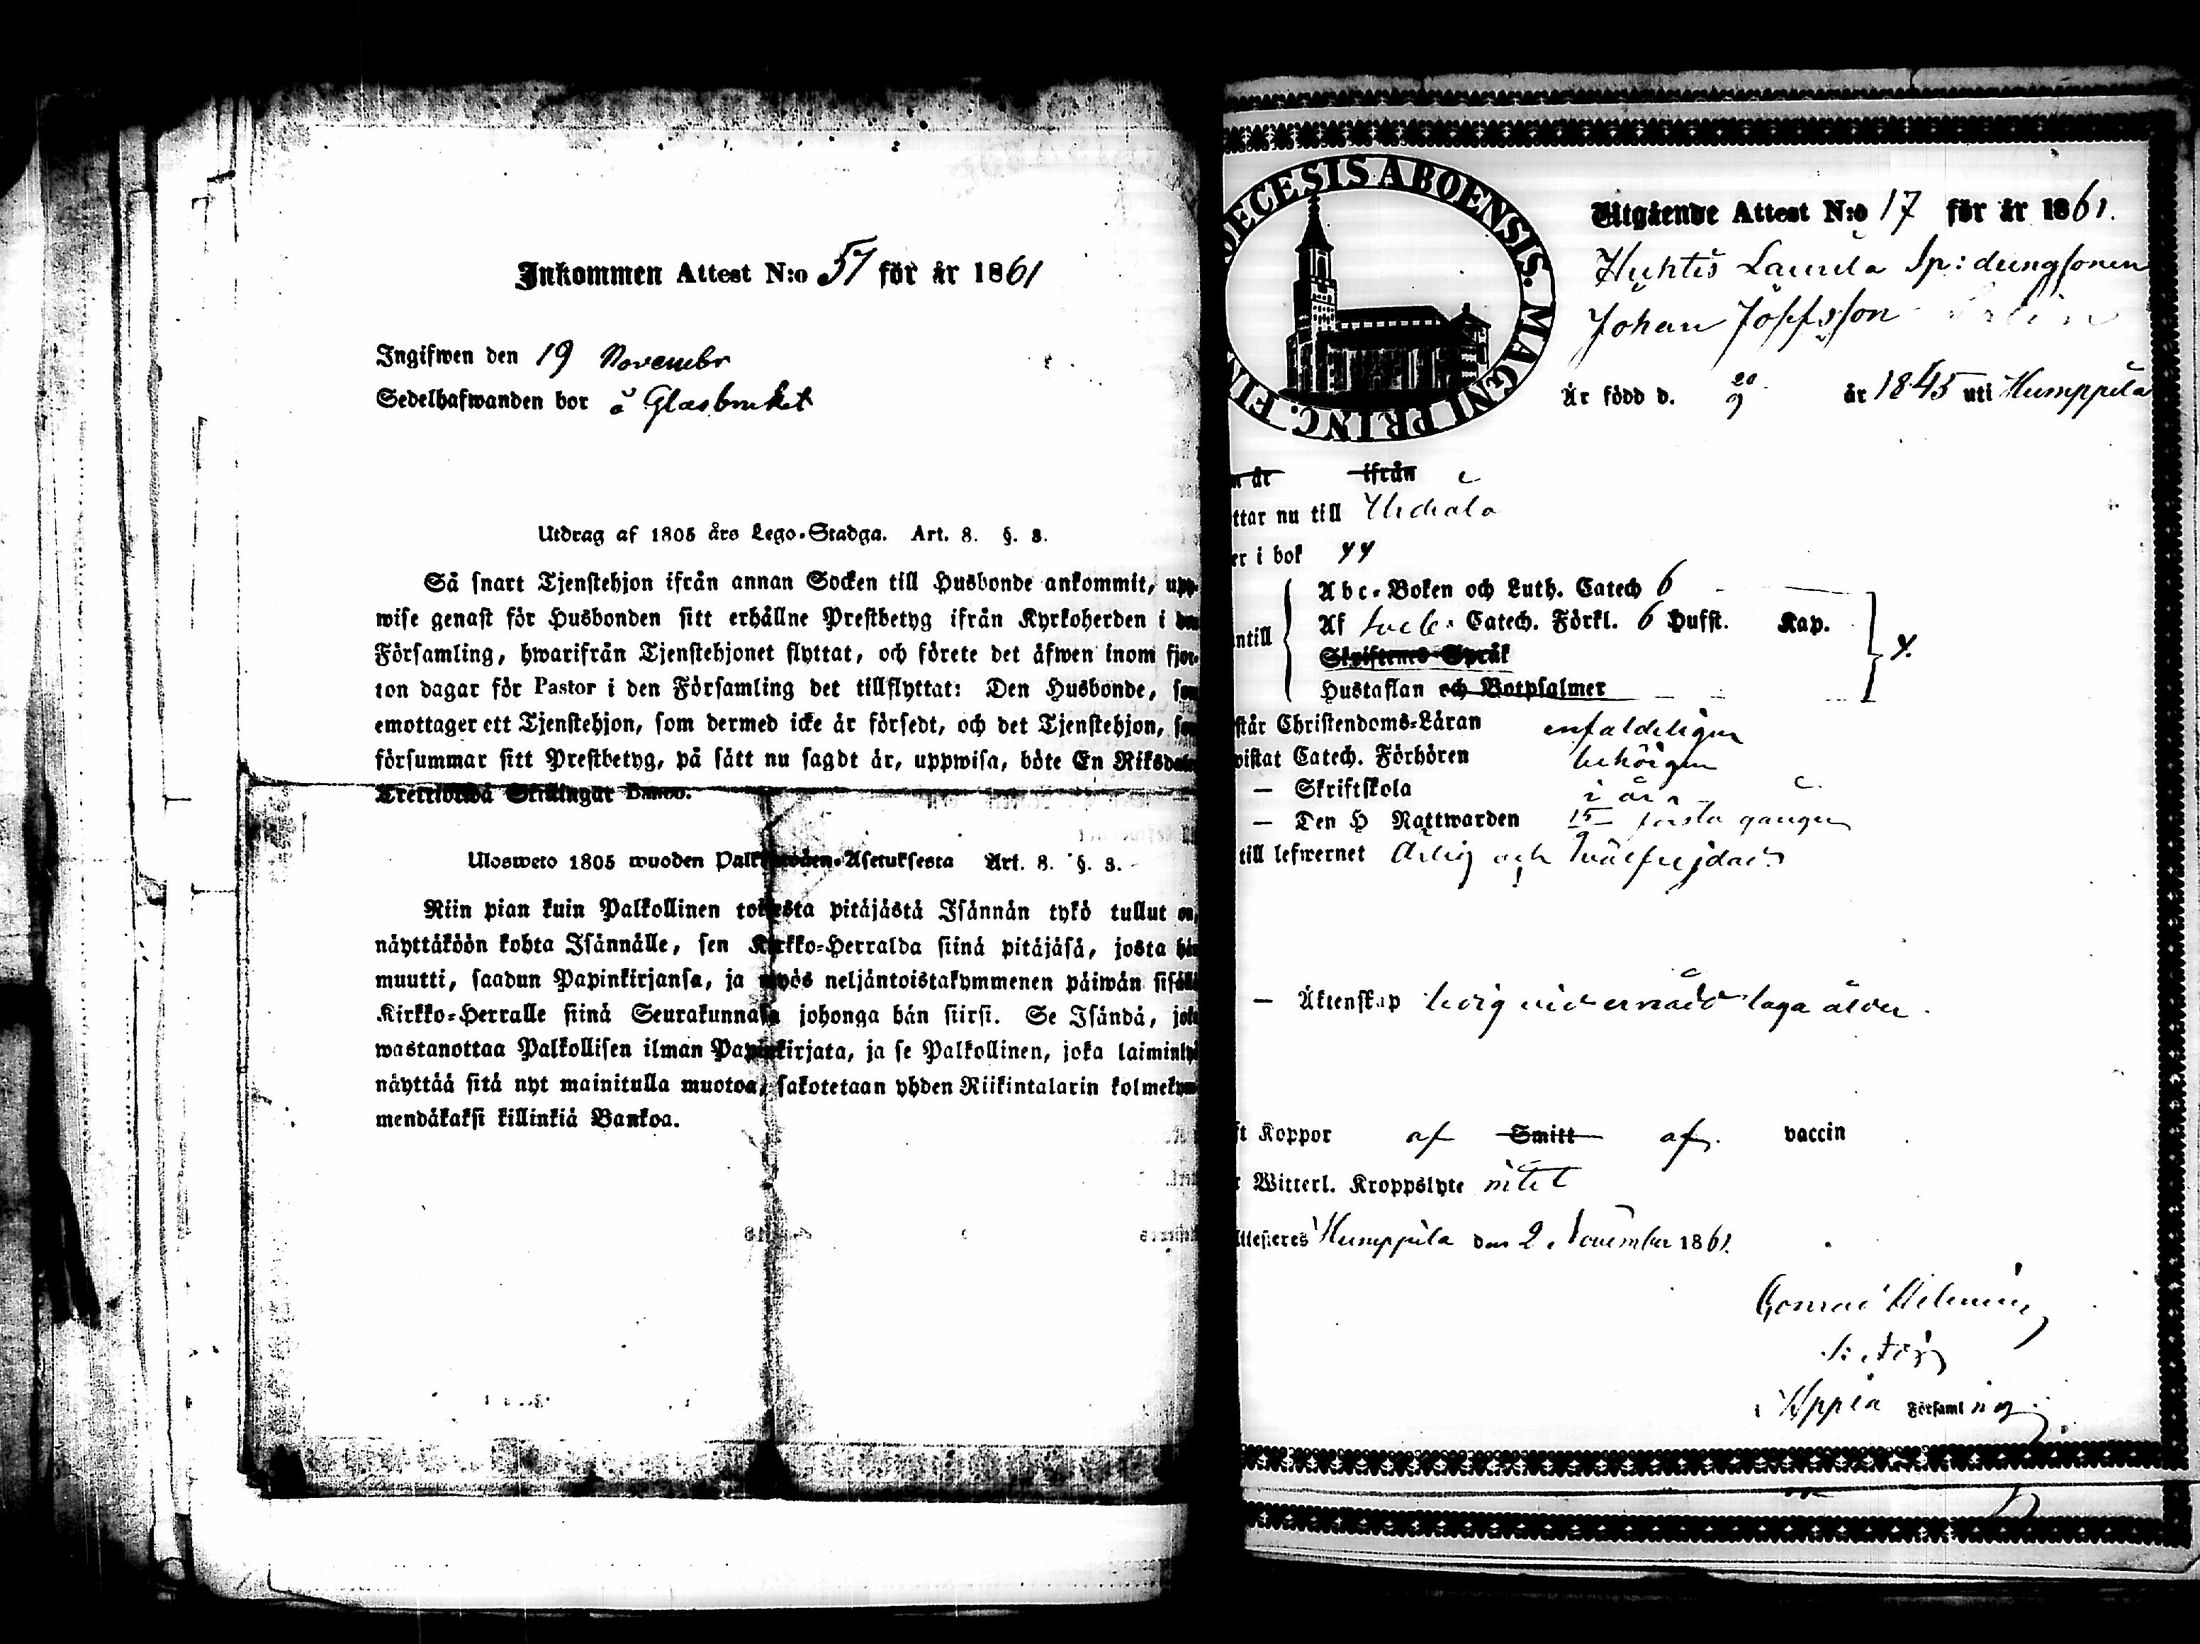 Inkommen Attest N:o 57 för år 1861
Ingifwen den 19 Novembr
Sedelhafwanden bor å Glasbruket
Utdrag af 1805 års Lego-Stadga. Art. 8. §. 3.
Så snart Tjenstehjon ifrån annan Socken till Husbonde ankommit, upp-
wise genast för Husbonden sitt erhållne Prestbetyg ifrån Kyrkoherden i den
Församling, hwarifrån Tjenstehjonet flyttat, och förete det äfwen inom fjor-
ton dagar för Pastor i den Församling det tillflyttat: Den Husbonde, som
emottager ett Tjenstehjon, som dermed icke är försedt, och det Tjenstehjon, som
försummar sitt Prestbetyg, på sätt nu sagdt är, uppwisa, böte En Riksdaler
Trettiotwå Skillingar Banco.
Ulosweto 1805 wuoden Palkkawäen-Asetuksesta Art. 8. §. 3.
Niin pian kuin Palkollinen toisesta pitäjästä Isännän tykö tullut on,
näyttäköön kohta Isännälle, sen Kirkko-Herralda siinä pitäjäsä, josta hän
muutti, saadun Papinkirjansa, ja myös neljäntoistakymmenen päiwän sisällä
Kirkko-Herralle siinä Seurakunnasa johonga hän siirsi. Se Isändä, joka
wastanottaa Palkollisen ilman Papinkirjata, ja se Palkollinen, joka laiminlyö
näyttää sitä nyt mainitulla muotoa, sakotetaan yhden Riikintalarin kolmekym-
mendäkaksi killinkiä Bankoa.
DECESIS ABOENSIS. MAGNI PRINC. FIN
Utgående Attest N:o 17 för år 1861.
Huhtis Laurila Sp: drengsonen
Johan Josefsson
Är född d. 20/9 år 1845 uti Humppila
n år ifrån
ttar nu till Urdiala
er i bok 44
ntill
Abc-Boken och Luth. Catech 6
Af Sveb. Catech. Förkl. 6 Hufst. Kap.
Skriftenes Språk
Hustaflan och Botpsalmer
4.
står Christendoms-Läran enfaldeligen
wistat Catech. Förhören behörigen
— Skriftskola i år
— Den H Nattwarden första gången
till lefwernet Ärlig och wälfrejdad
— Äktenskap ledig vid ernådd laga ålder.
ft Koppor af Smitt af vaccin
r Witterl. Kroppslyte intet
Attesteres Humppila den 2 November 1861.
i Yppää Församling.